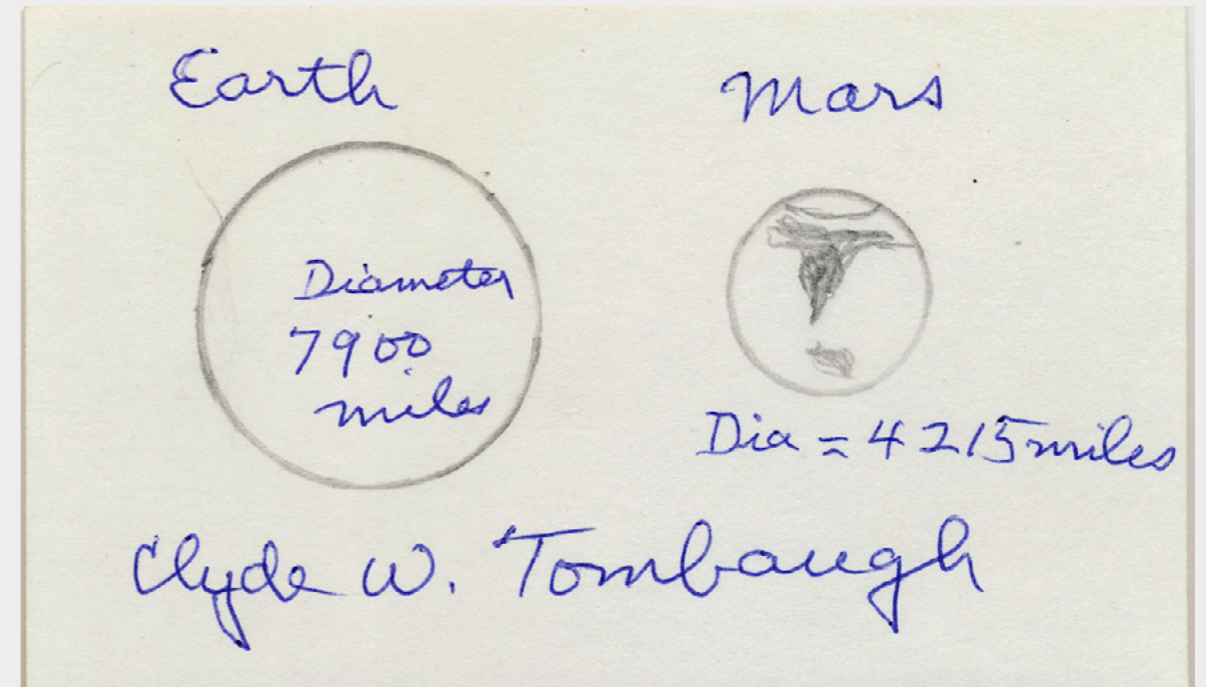 Earth
Mars
Diameter
7900
miles
Dia = 4215 miles
Clyde W. Tombaugh